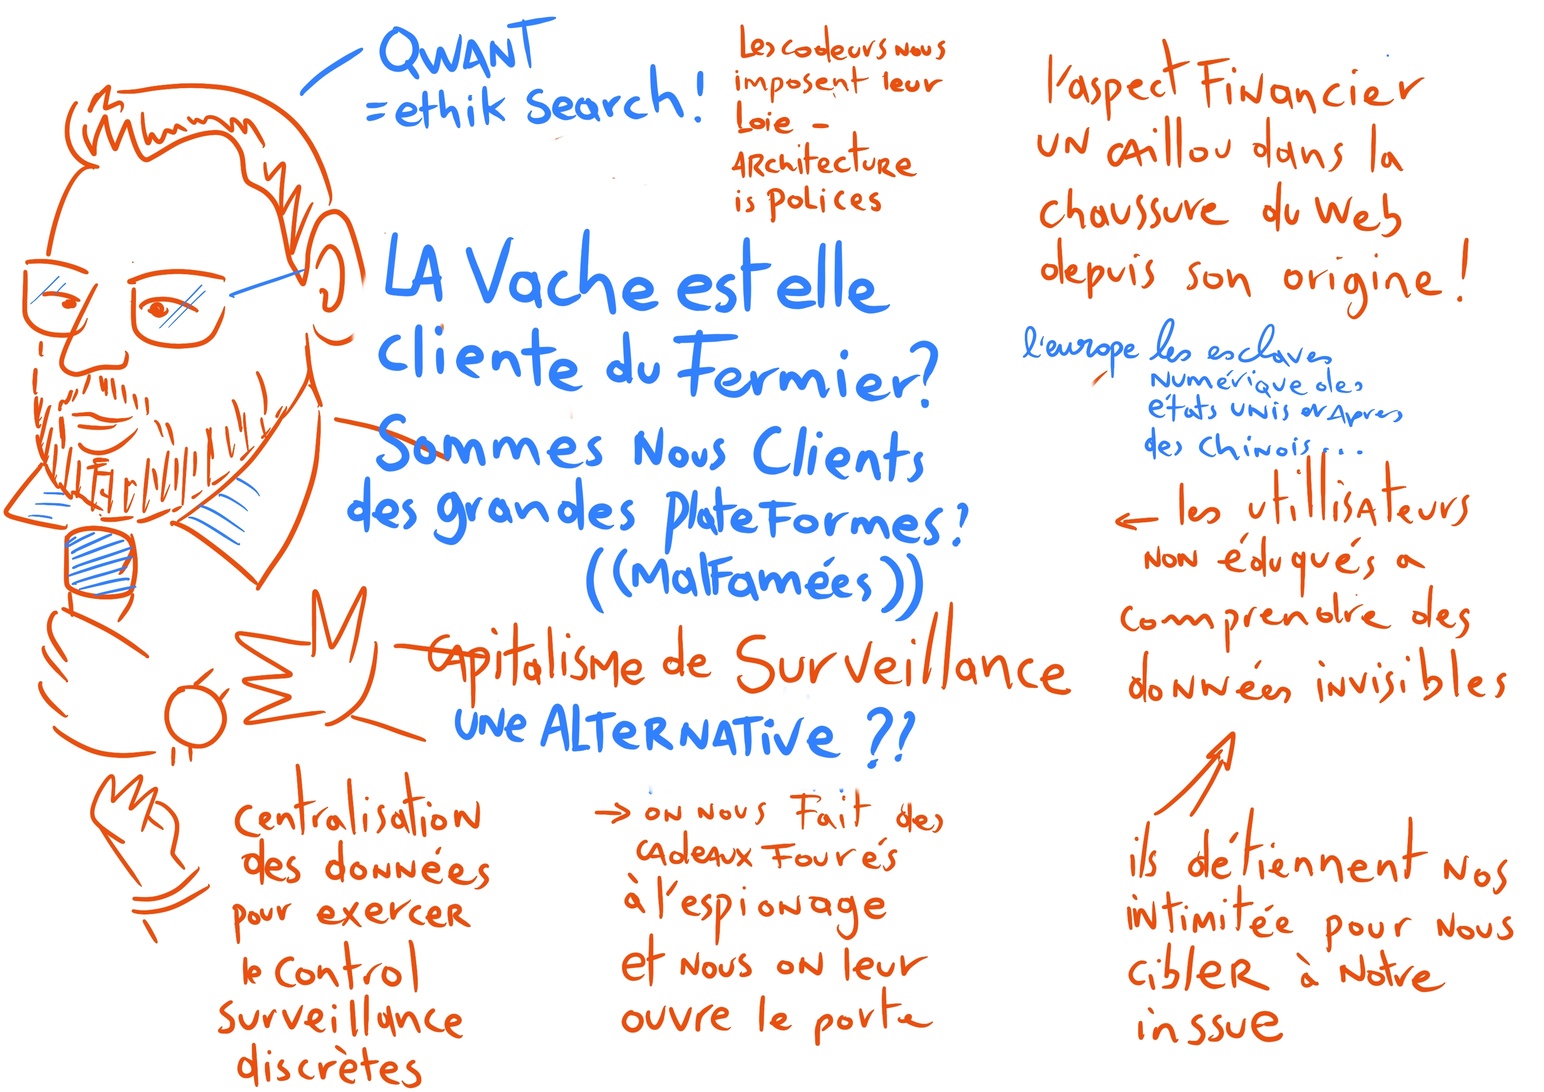 QWANT
= ethik search !
Les codeurs nous
imposent leur
Loie -
Architecture
is polices
l'aspect Financier
un caillou dans la
chaussure du Web
depuis son origine !
LA Vache est elle
cliente du Fermier ?
Sommes Nous Clients
des grandes plateformes ?
((Malfamées))
l'europe les esclaves
numérique des
états unis d'Apres
des Chinois...
← les utillisateurs
non éduqués a
comprendre des
données invisibles
capitalisme de Surveillance
une ALTERNATive ??
centralisation
des données
pour exercer
le control
surveillance
discrètes
→ on nous Fait des
cadeaux Fourés
à l'espionage
et nous on leur
ouvre le porte
ils détiennent nos
intimitée pour nous
cibler à notre
inssue